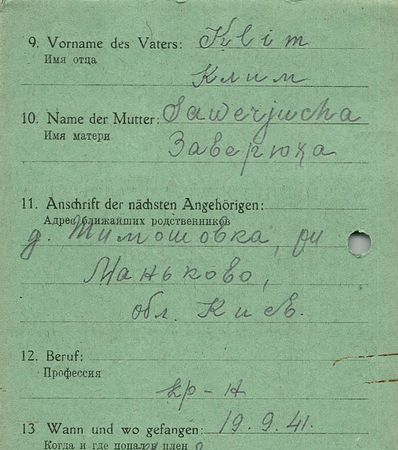 9. Vorname des Vaters: Klim
Имя отца
Клим
10. Name der Mutter: Sawerjucha
Имя матери
Заверюха
11. Anschrift der nächsten Angehörigen:
Адрес ближайших родственников
д. Тимошовка, рн
Маньково,
обл. Киев.
12. Beruf:
Профессия
кр-н
13 Wann und wo gefangen: 19.9.41.
Когда и где попал в плен